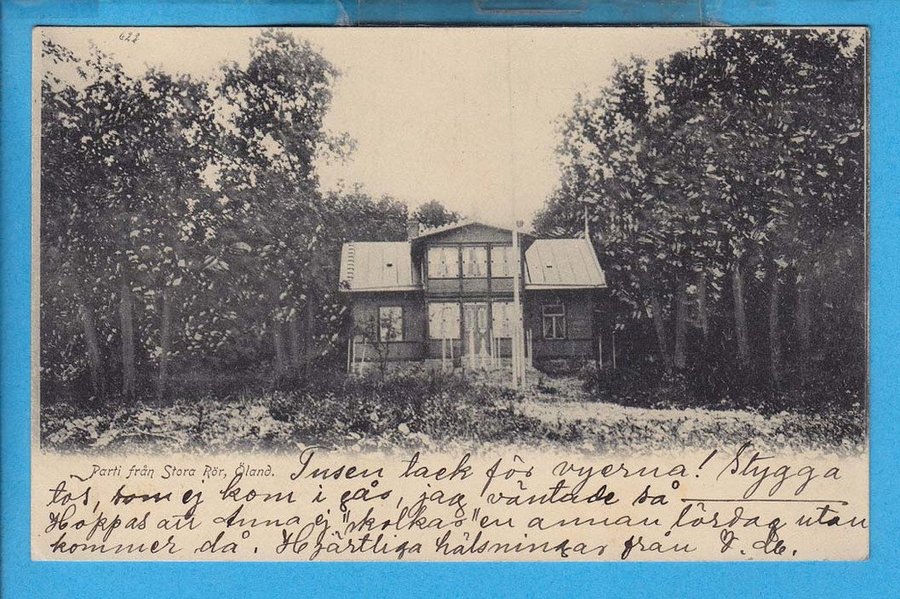 622
Parti från Stora Rör, Öland. Tusen tack för vyerna! Stygga
tös, som ej kom i gås, jag väntade så
Hoppas att Anna ej "skolkas" en annan lördag utan
kommer då. Hjärtliga hälsningar från